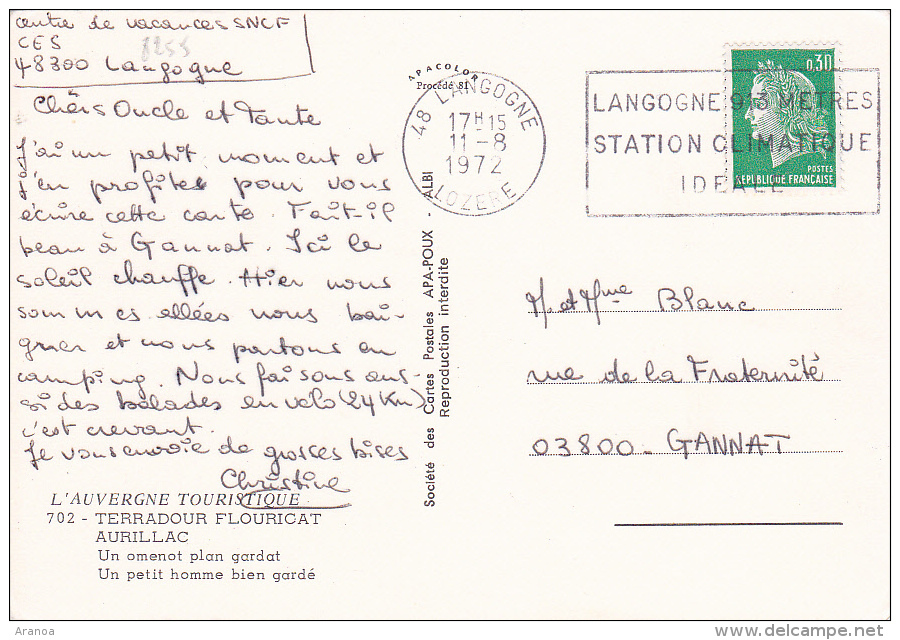 centre de vacances SNCF
CES
48300 Langogne
8255
Chers Oncle et Tante
J'ai un petit moment et
j'en profites pour vous
écrire cette carte. Fait-il
beau à Gannat. Ici le
soleil chauffe. Hier nous
sommes allées nous bai-
gner et nous partons en
camping. Nous faisons aus-
si des balades en vélo (24 Km)
c'est crevant.
Je vous envoie de grosses bises
Christine
L'AUVERGNE TOURISTIQUE
702 - TERRADOUR FLOURICAT
AURILLAC
Un omenot plan gardat
Un petit homme bien gardé
Société des Cartes Postales APA-POUX - ALBI
Reproduction interdite
APACOLOR
Procédé 81
48 LANGOGNE
17H15
11-8
1972
LOZERE
LANGOGNE 913 METRES
STATION CLIMATIQUE
IDEALE
0,30
POSTES
REPUBLIQUE FRANÇAISE
M. et Mme Blanc
rue de la Fraternité
03800 - GANNAT
Aranoa
www.delcampe.net